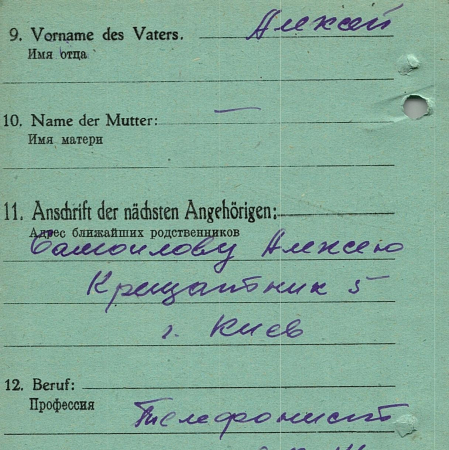 9. Vorname des Vaters. Алексей
Имя отца
10. Name der Mutter: —
Имя матери
11. Anschrift der nächsten Angehörigen:
Адрес ближайших родственников
Самойлову Алексею
Крещатник 5
г. Киев
12. Beruf:
Профессия
Телефонист